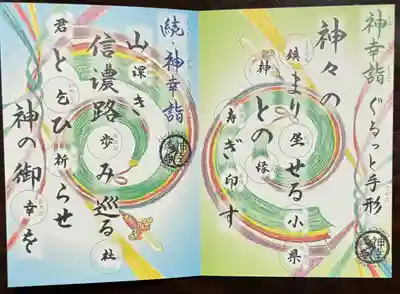 神幸詣 ぐるっと手形
神々の
鎮まり坐せる小県
神との縁
寿ぎ印す
続・神幸詣
山深き
信濃路歩み巡る社
君と乞ひ祈らせ
神の御幸を